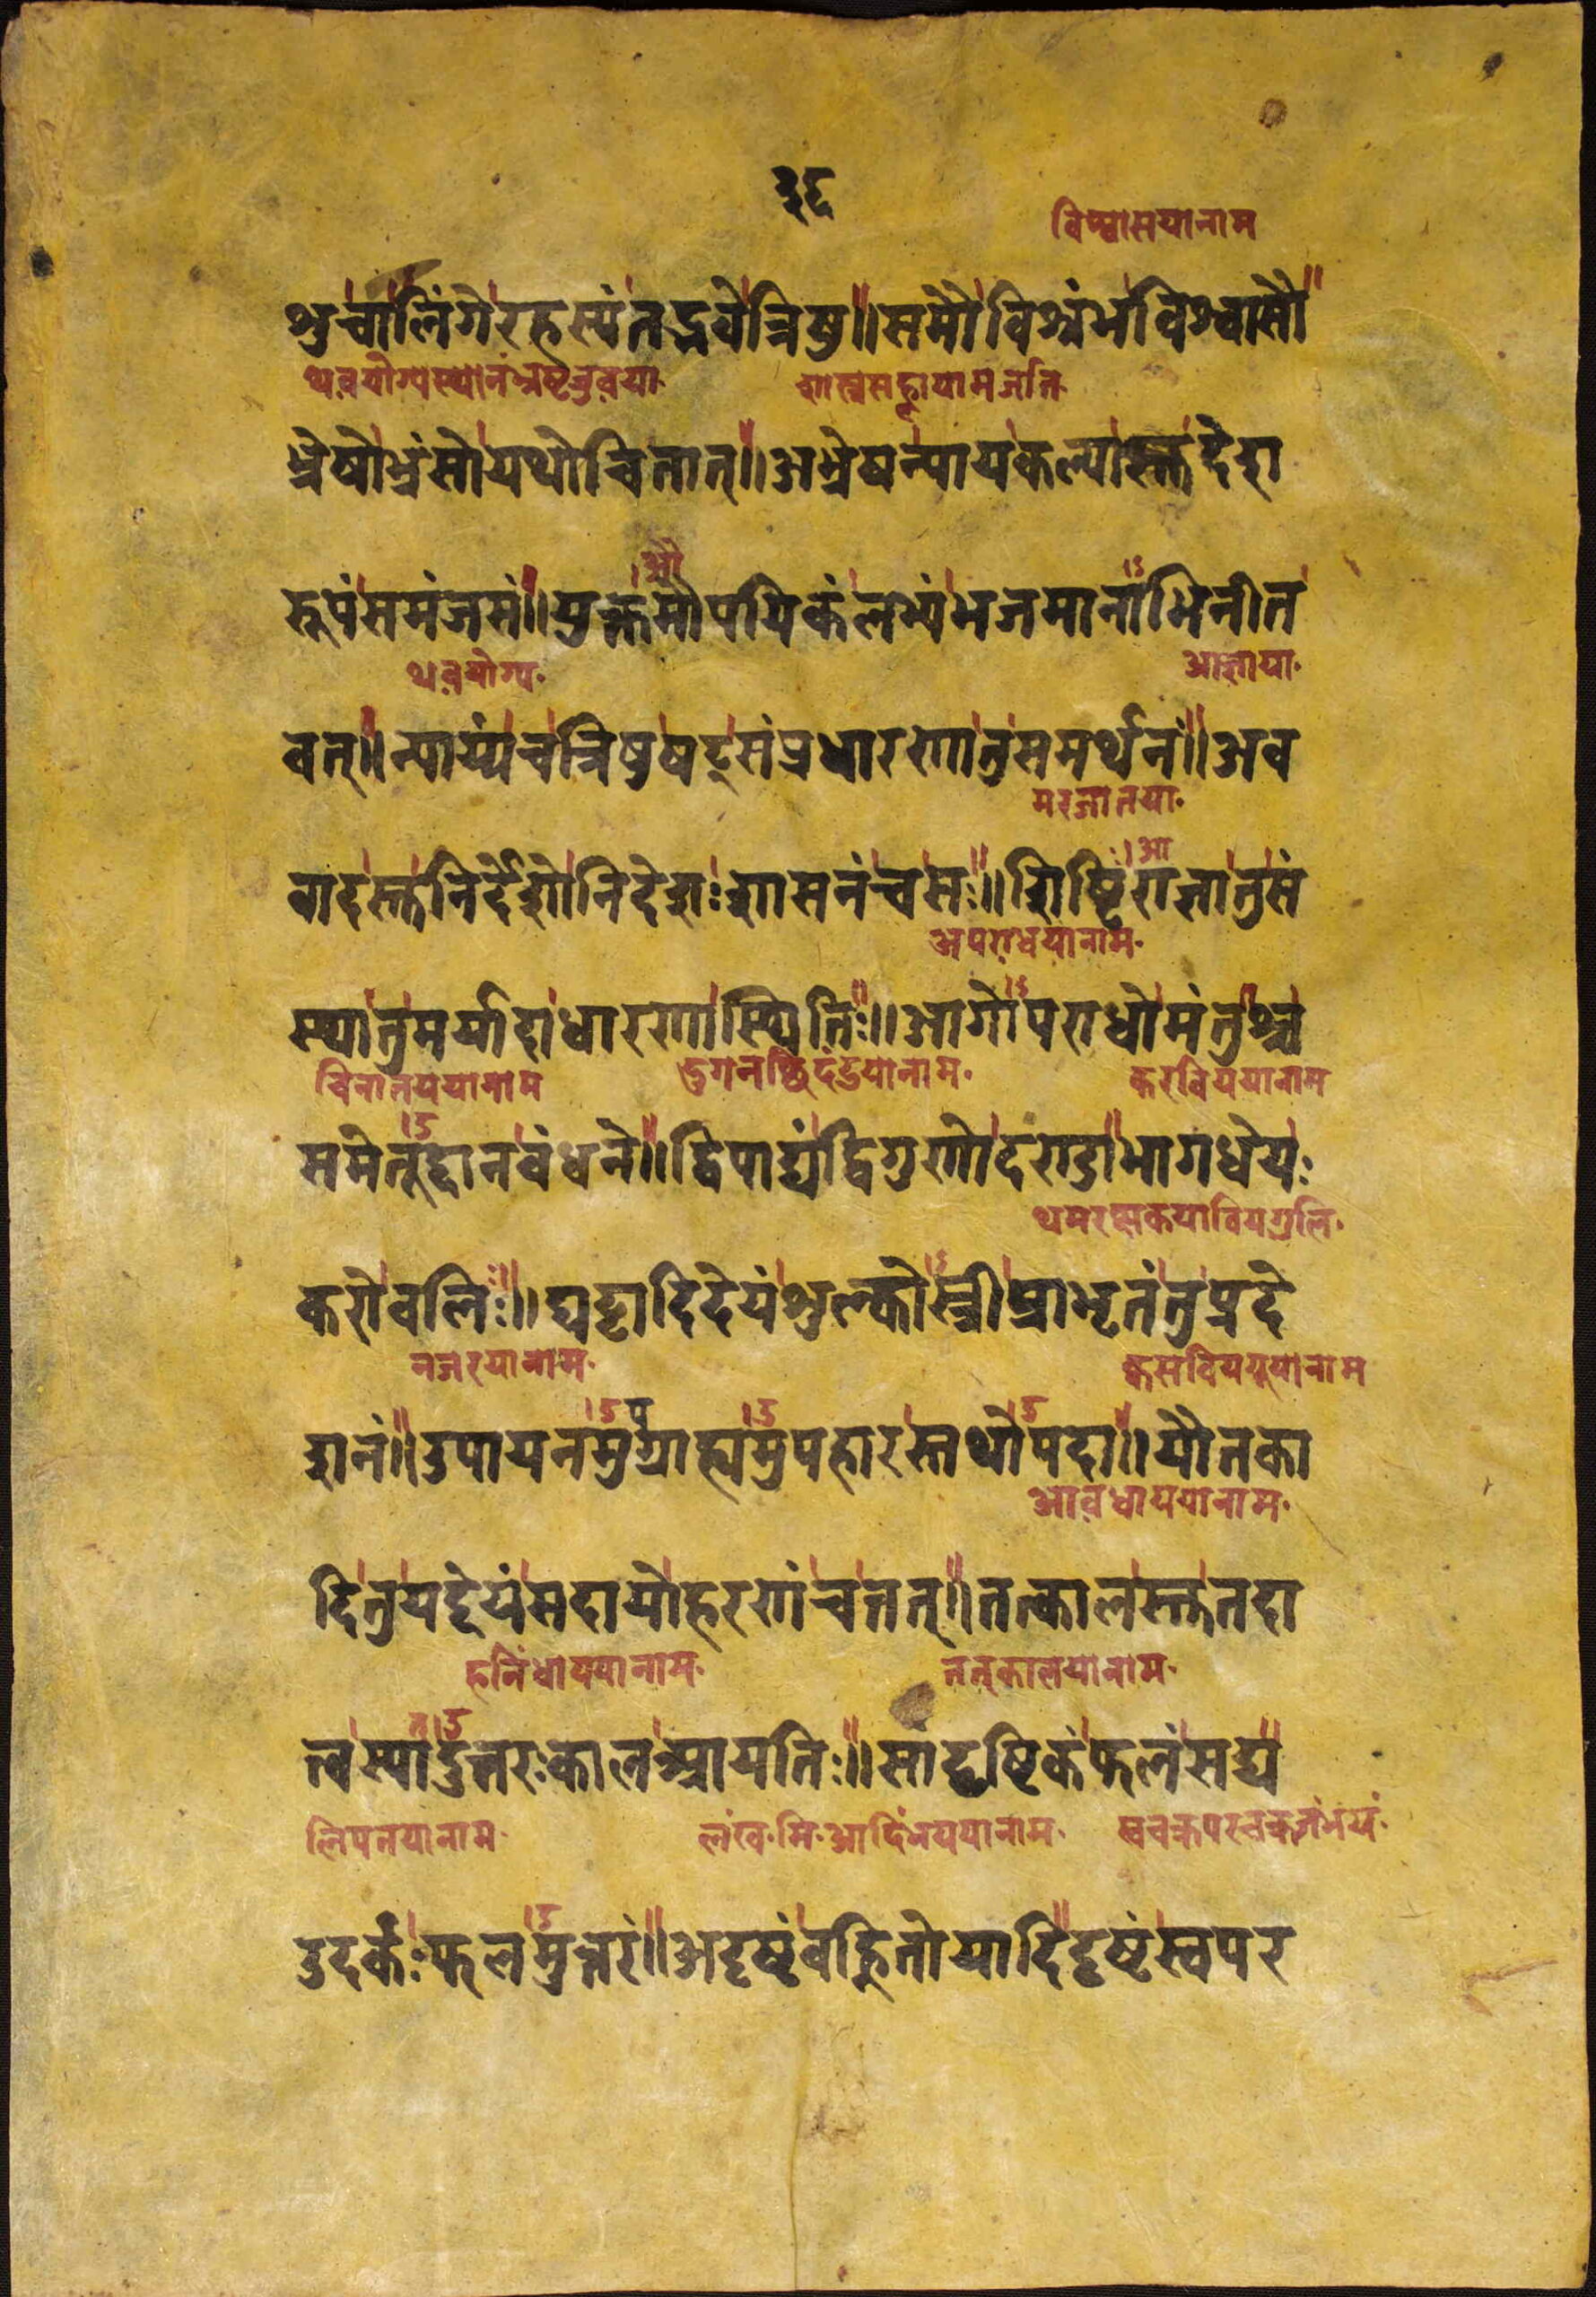 ३८
विष्वासयानाम
शुचालिंगेरहस्यंतद्भवेत्रिषु॥समौविश्रंभविश्वासौ
थवयोग्यस्थानंभ्रष्टजुवया
भ्रेषोभ्रंसोयथोचितात्॥अभ्रेषन्यायकल्पास्तुदेशा
औ
रूपंसमंजसं॥युक्तमौपयिकंलभ्यंभजमानाभिनीत
थवयोग्य. आज्ञाया.
वत्॥न्याय्यंचत्रिषुषट्संप्रधारणातुसमर्थनं॥अव
मरजातया.
आ
वादस्तुनिर्देशोनिदेशःशासनंचसः॥शिष्टिराज्ञातुसं
अपराधयानाम.
स्थातुमर्यादाधारणास्थितिः॥आगोऽपराधोमंतुश्च
चिनातययानाम दुगनछिदंडयानाम. करवियययानाम
समेतूद्दानवंधने॥द्विपाद्यंद्विगुणोदण्डोभागधेयः
करोवलिः॥घट्टादिदेयंशुल्कोऽस्त्रीप्राभृतंतुप्रदे
नजरयानाम.
ऽ प ऽ ऽ
शनं॥उपायनमुग्राह्यमुपहारस्तथोपदा॥यौतका
आवधाययानाम.
दितुयद्देयंसदायोहरणंचतत्॥तत्कालस्तुतदा
हनिंधाययानाम. तत्कालयानाम.
त ऽ
त्वस्यादुत्तरःकालआयतिः॥सांदृष्टिकंफलंसद्य
लिपतयानाम. लंख.मि.आदिंभयययानाम. स्वचक्रपरचक्रजंभयं.
उदर्कःफलमुत्तरं॥अदृष्टंवह्नितोयादिदृष्टंस्वपर